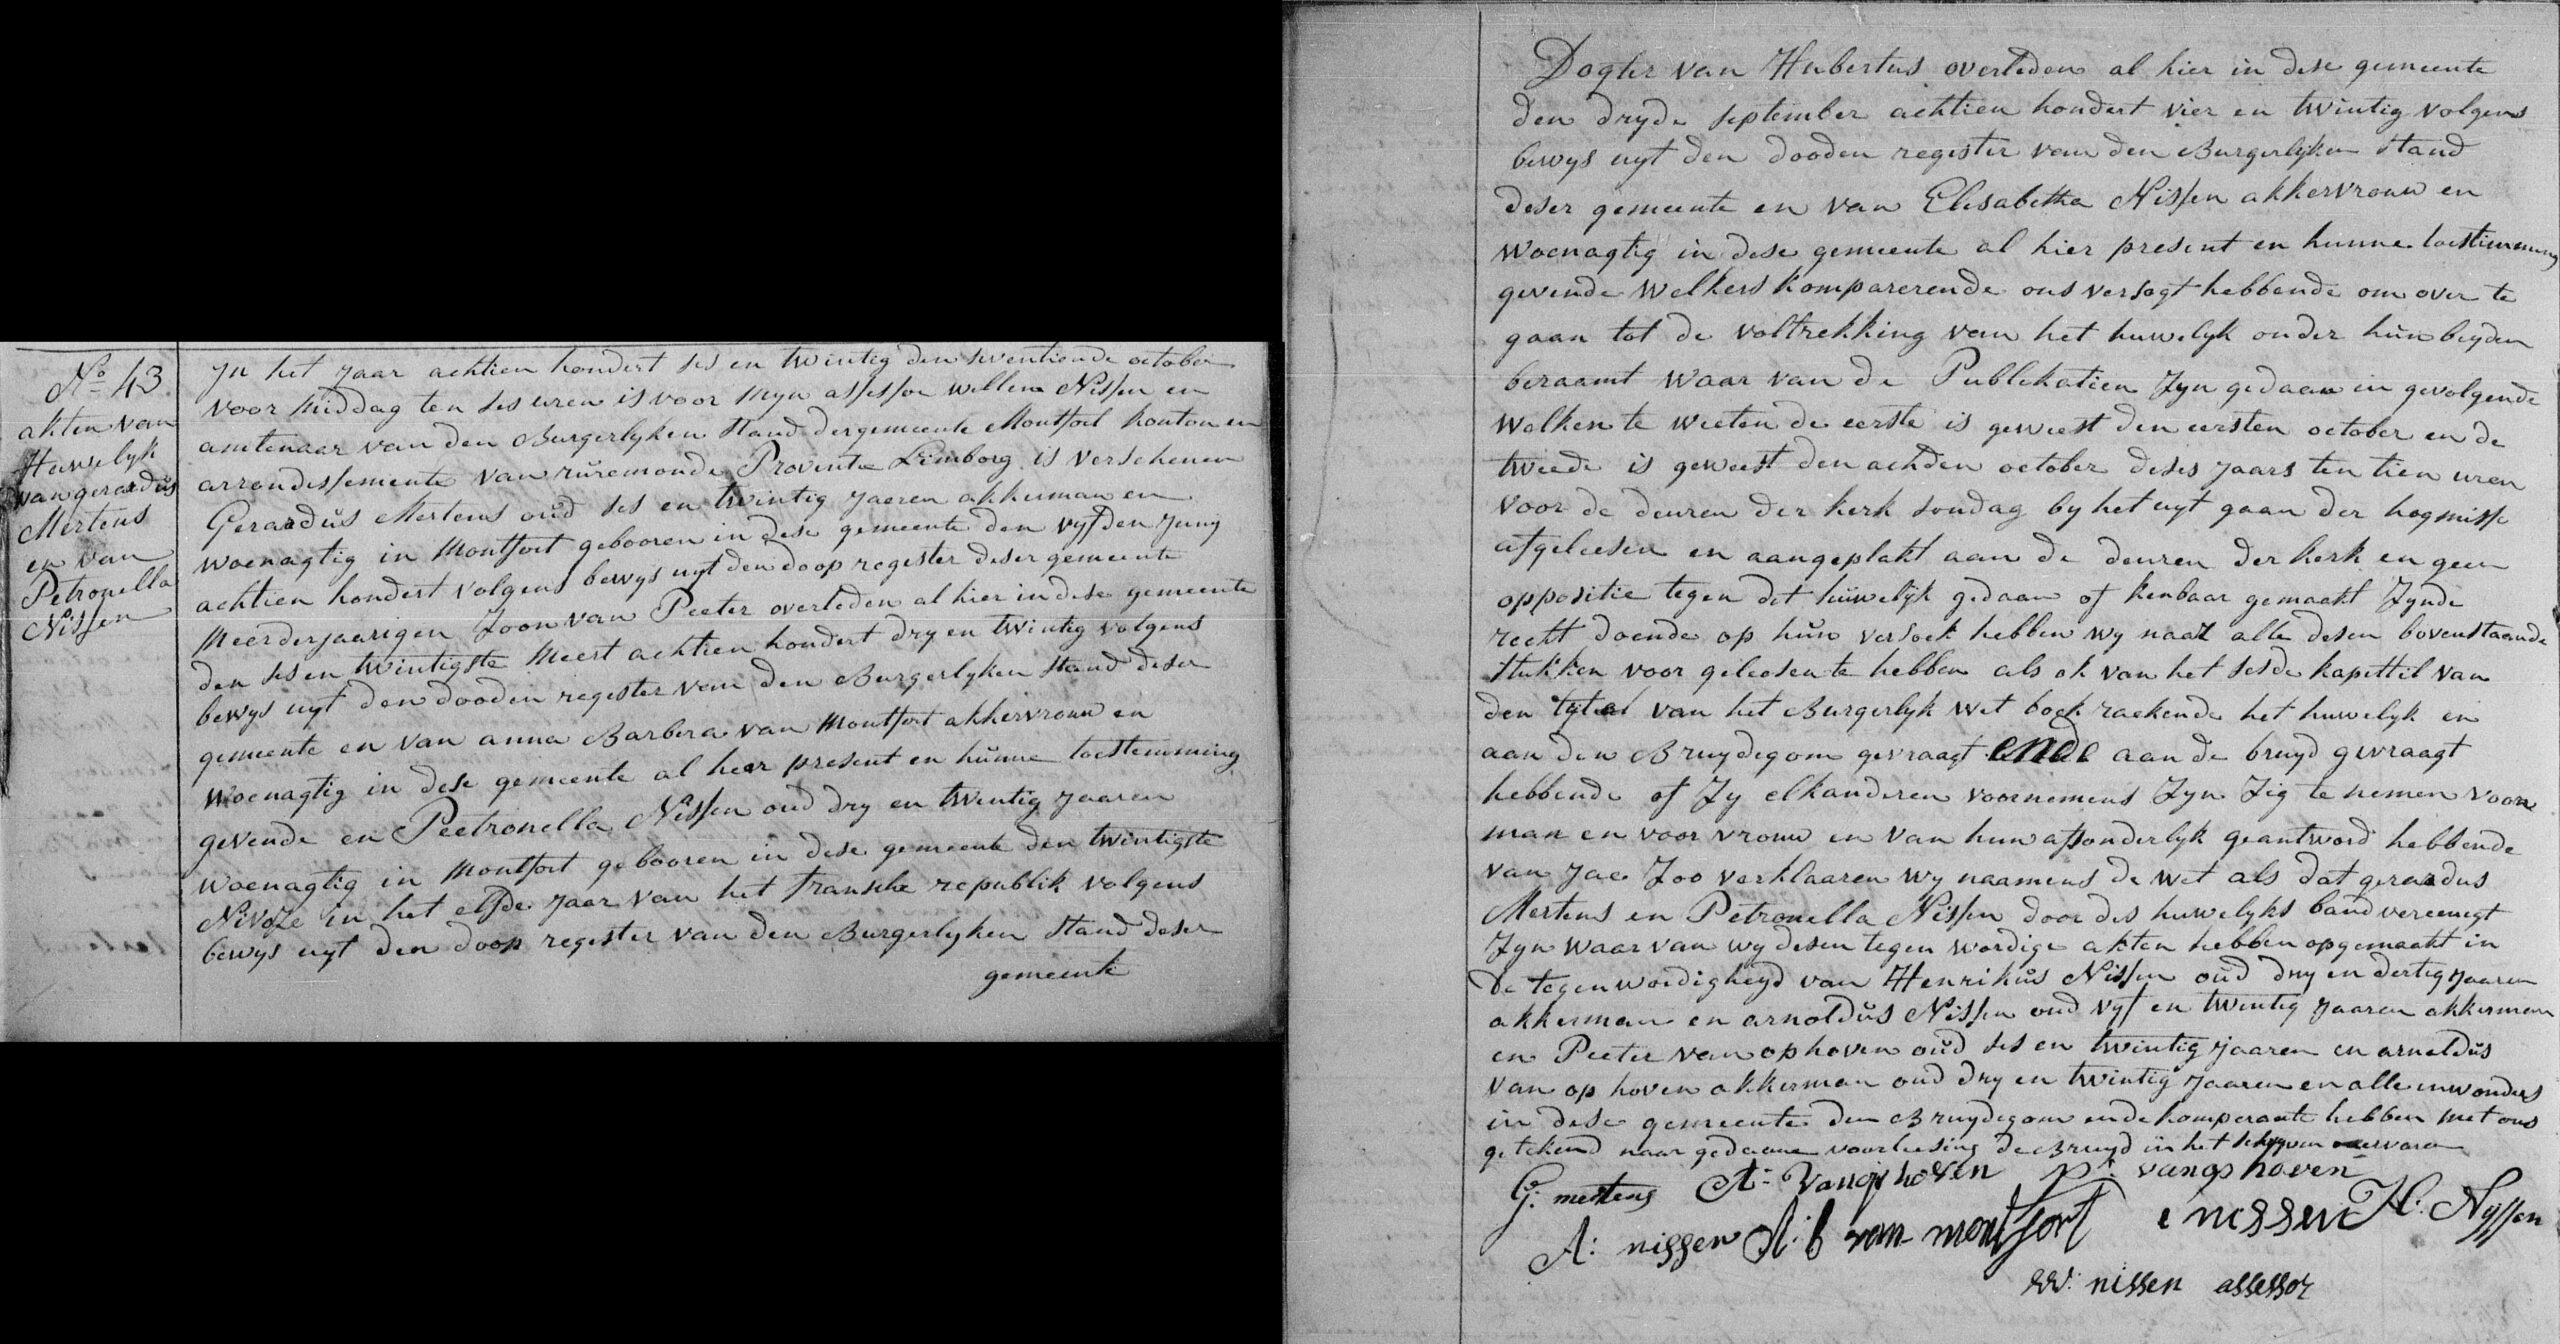 No 43
akten van
Huwelyk
van gerardus
Mertens
en van
Petronella
Nissen
In het jaar achtien hondert ses en twintig den seventiende october
voor middag ten ses uren is voor myn assessor willem Nissen en
amtenaar van den Burgerlyken Stand der gemeente Montfort konton en
arrondissemente van ruremonde Provente Limborg is verschenen
Gerardus Mertens oud ses en twintig jaeren akkerman en
woenagtig in Montfort gebooren in dese gemeente den vyfden Juny
achtien hondert volgens bewys uyt den doop register deser gemeente
Meerderjaerigen Zoon van Peeter overleden al hier in dese gemeente
den ses en twintigste Meert achtien hondert dry en twintig volgens
bewys uyt den dooden register van den Burgerlyken Stand deser
gemeente en van anna Barbera van Montfort akkervrouw en
woenagtig in dese gemeente al hier present en hunne toestemming
gevende en Peetronella Nissen oud dry en twentig jaaren
woenagtig in Montfort gebooren in dese gemeente den twintigste
Nivoze in het elfde jaar van het fransche republik volgens
bewys uyt den doop register van den Burgerlyken Stand deser
gemeente
Dogter van Hubertus overleden al hier in dese gemeente
den dryde september achtien hondert vier en twintig volgens
bewys uyt den dooden register van den Burgerlyken Stand
deser gemeente en van Elisabetha Nissen akkervrouw en
woenagtig in dese gemeente al hier present en hunne toestimming
gevende welkers komparerende ons versogt hebbende om over te
gaan tot de voltrekking van het huwelyk onder hun beyden
beraamt waar van de Publikatien Zyn gedaan in gevolgende
welken te weeten de eerste is geweest den eersten october en de
tweede is geweest den achden october deses jaars ten tien uren
voor de deuren der kerk sondag by het uyt gaan der hogmisse
afgeleesen en aangeplakt aan de deuren der kerk en geen
oppositie tegen dit huwelyk gedaan of kenbaar gemaakt Zynde
recht doende op hun versoek hebben wy naar alle desen bovenstaande
stukken voor geleesen te hebben als ok van het sesde kapittel van
den tytel van het Burgerlyk wet boek raekende het huwelyk en
aan den Bruydegom gevraagt ende aan de bruyd gevraagt
hebbende of Zy elkanderen voornemens Zyn Zig te nemen voor
man en voor vrouw en van hun afsonderlyk geantword hebbende
van Jae Zoo verklaaren wy naamens de wet als dat gerardus
Mertens en Petronella Nissen door des huwelyks band vereenigt
Zyn waar van wy desen tegen wordige akten hebben opgemaakt in
de tegenwoordigheyd van Henrikus Nissen oud dry en dertig jaaren
akkerman en arnoldus Nissen oud vyf en twintig jaaren akkerman
en Peeter van ophoven oud ses en twintig jaaren en arnoldus
van op hoven akkerman oud dry en twintig jaaren en alle inwonders
in dese gemeente den Bruydegom ende komperante hebben met ons
getekend naar gedaane voorleesing de Bruyd in het schryven onervaren
G: mertens A: Vanophoven P: vanophoven
A: nissen A: b van montfort e nessen H: Nyssen
W: nissen assessor